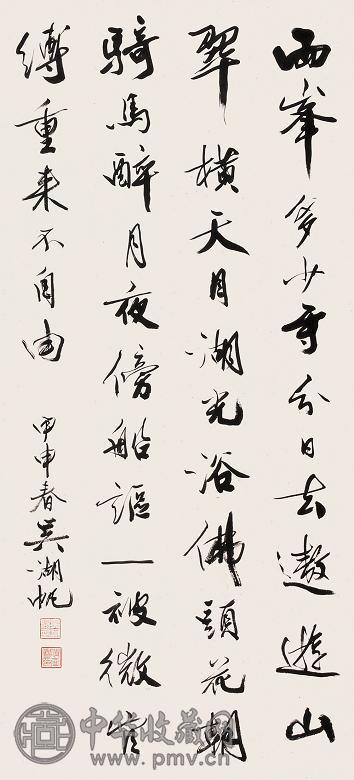 兩峯多少寺分日去遨遊山
翠橫天目湖光浴佛頭花朝
騎馬醉月夜傍船謳一被微官
縛重来不自由
甲申春吳湖帆
中华收藏网
www.pmv.cn